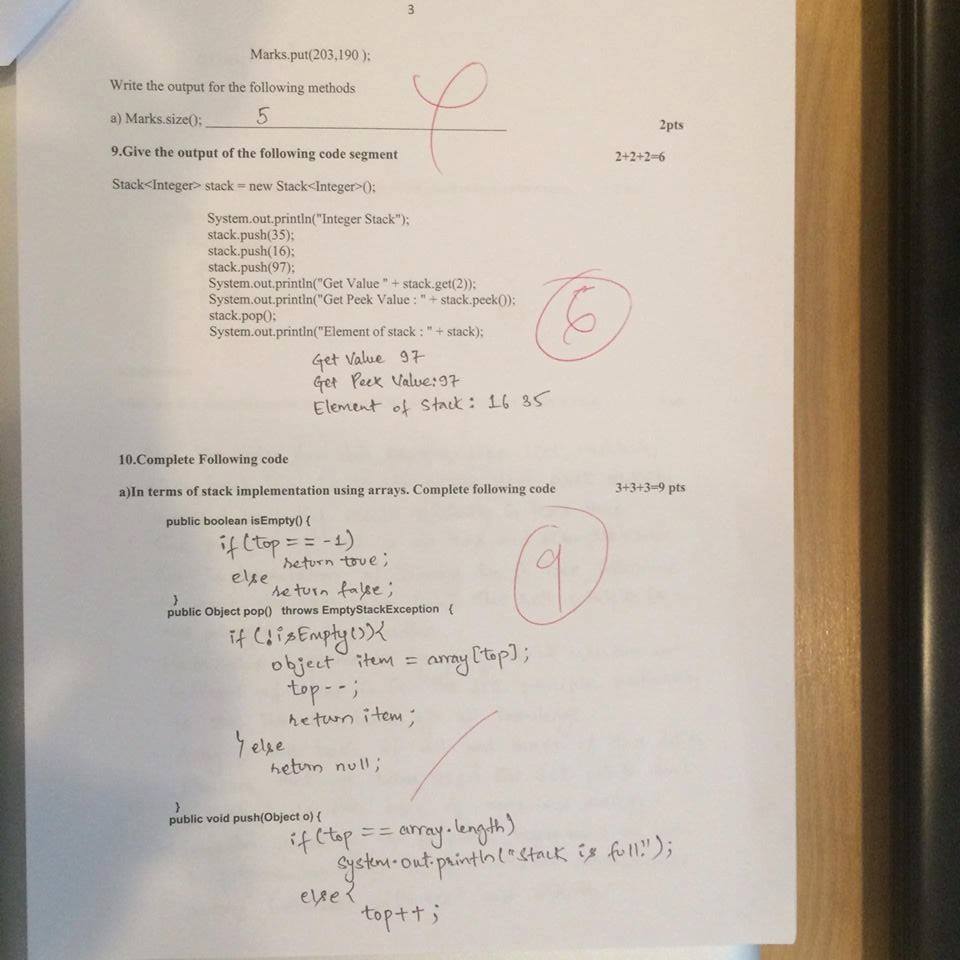 3
Marks.put(203,190 );
Write the output for the following methods
a) Marks.size(); 5
2pts
9.Give the output of the following code segment 2+2+2=6
Stack<Integer> stack = new Stack<Integer>();
System.out.println("Integer Stack");
stack.push(35);
stack.push(16);
stack.push(97);
System.out.println("Get Value " + stack.get(2));
System.out.println("Get Peek Value : " + stack.peek());
stack.pop();
System.out.println("Element of stack : " + stack);
6
Get Value 97
Get Peek Value:97
Element of Stack: 16 35
10.Complete Following code
a)In terms of stack implementation using arrays. Complete following code 3+3+3=9 pts
public boolean isEmpty() {
if (top == -1)
return true;
else
return false;
}
9
public Object pop() throws EmptyStackException {
if (!isEmpty()){
object item = array[top];
top--;
return item;
} else
return null;
}
public void push(Object o) {
if (top == array.length)
system.out.println("Stack is full!");
else {
top++;